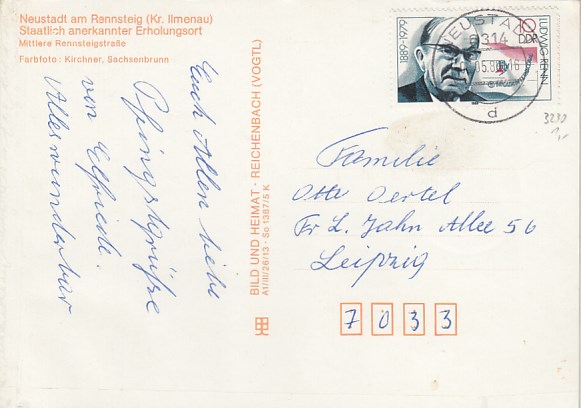 Neustadt am Rennsteig (Kr. Ilmenau)
Staatlich anerkannter Erholungsort
Mittlere Rennsteigstraße
Farbfoto: Kirchner, Sachsenbrunn
Euch Allen liebe
Pfingstgrüße
von Elfriede.
Alles wunderbar
BILD UND HEIMAT · REICHENBACH (VOGTL)
A1/III/26/13 · So 1387/5 K
1889-1979
10
DDR
LUDWIG RENN
NEUSTADT
6314
d
3230
1,-
Familie
Otto Oertel
Fr L. Jahn Allee 56
Leipzig
7033